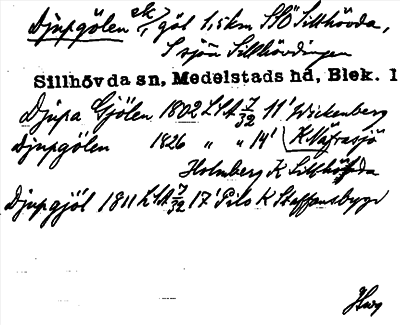 Djupgölen ek, göl 1,5 km SSÖ Sillhövda,
I sjön Sillhövdingen
Sillhövda sn, Medelstads hd, Blek. 1
Djupa Gjölen 1802 LSA 7/32 11' Wickenberg
Djupgölen 1826 " " 14' K Näfrasjö
Holmberg K Sillhöfda
Djupgjöl 1811 LSA 7/32 17' Pilo K Staffansbygd